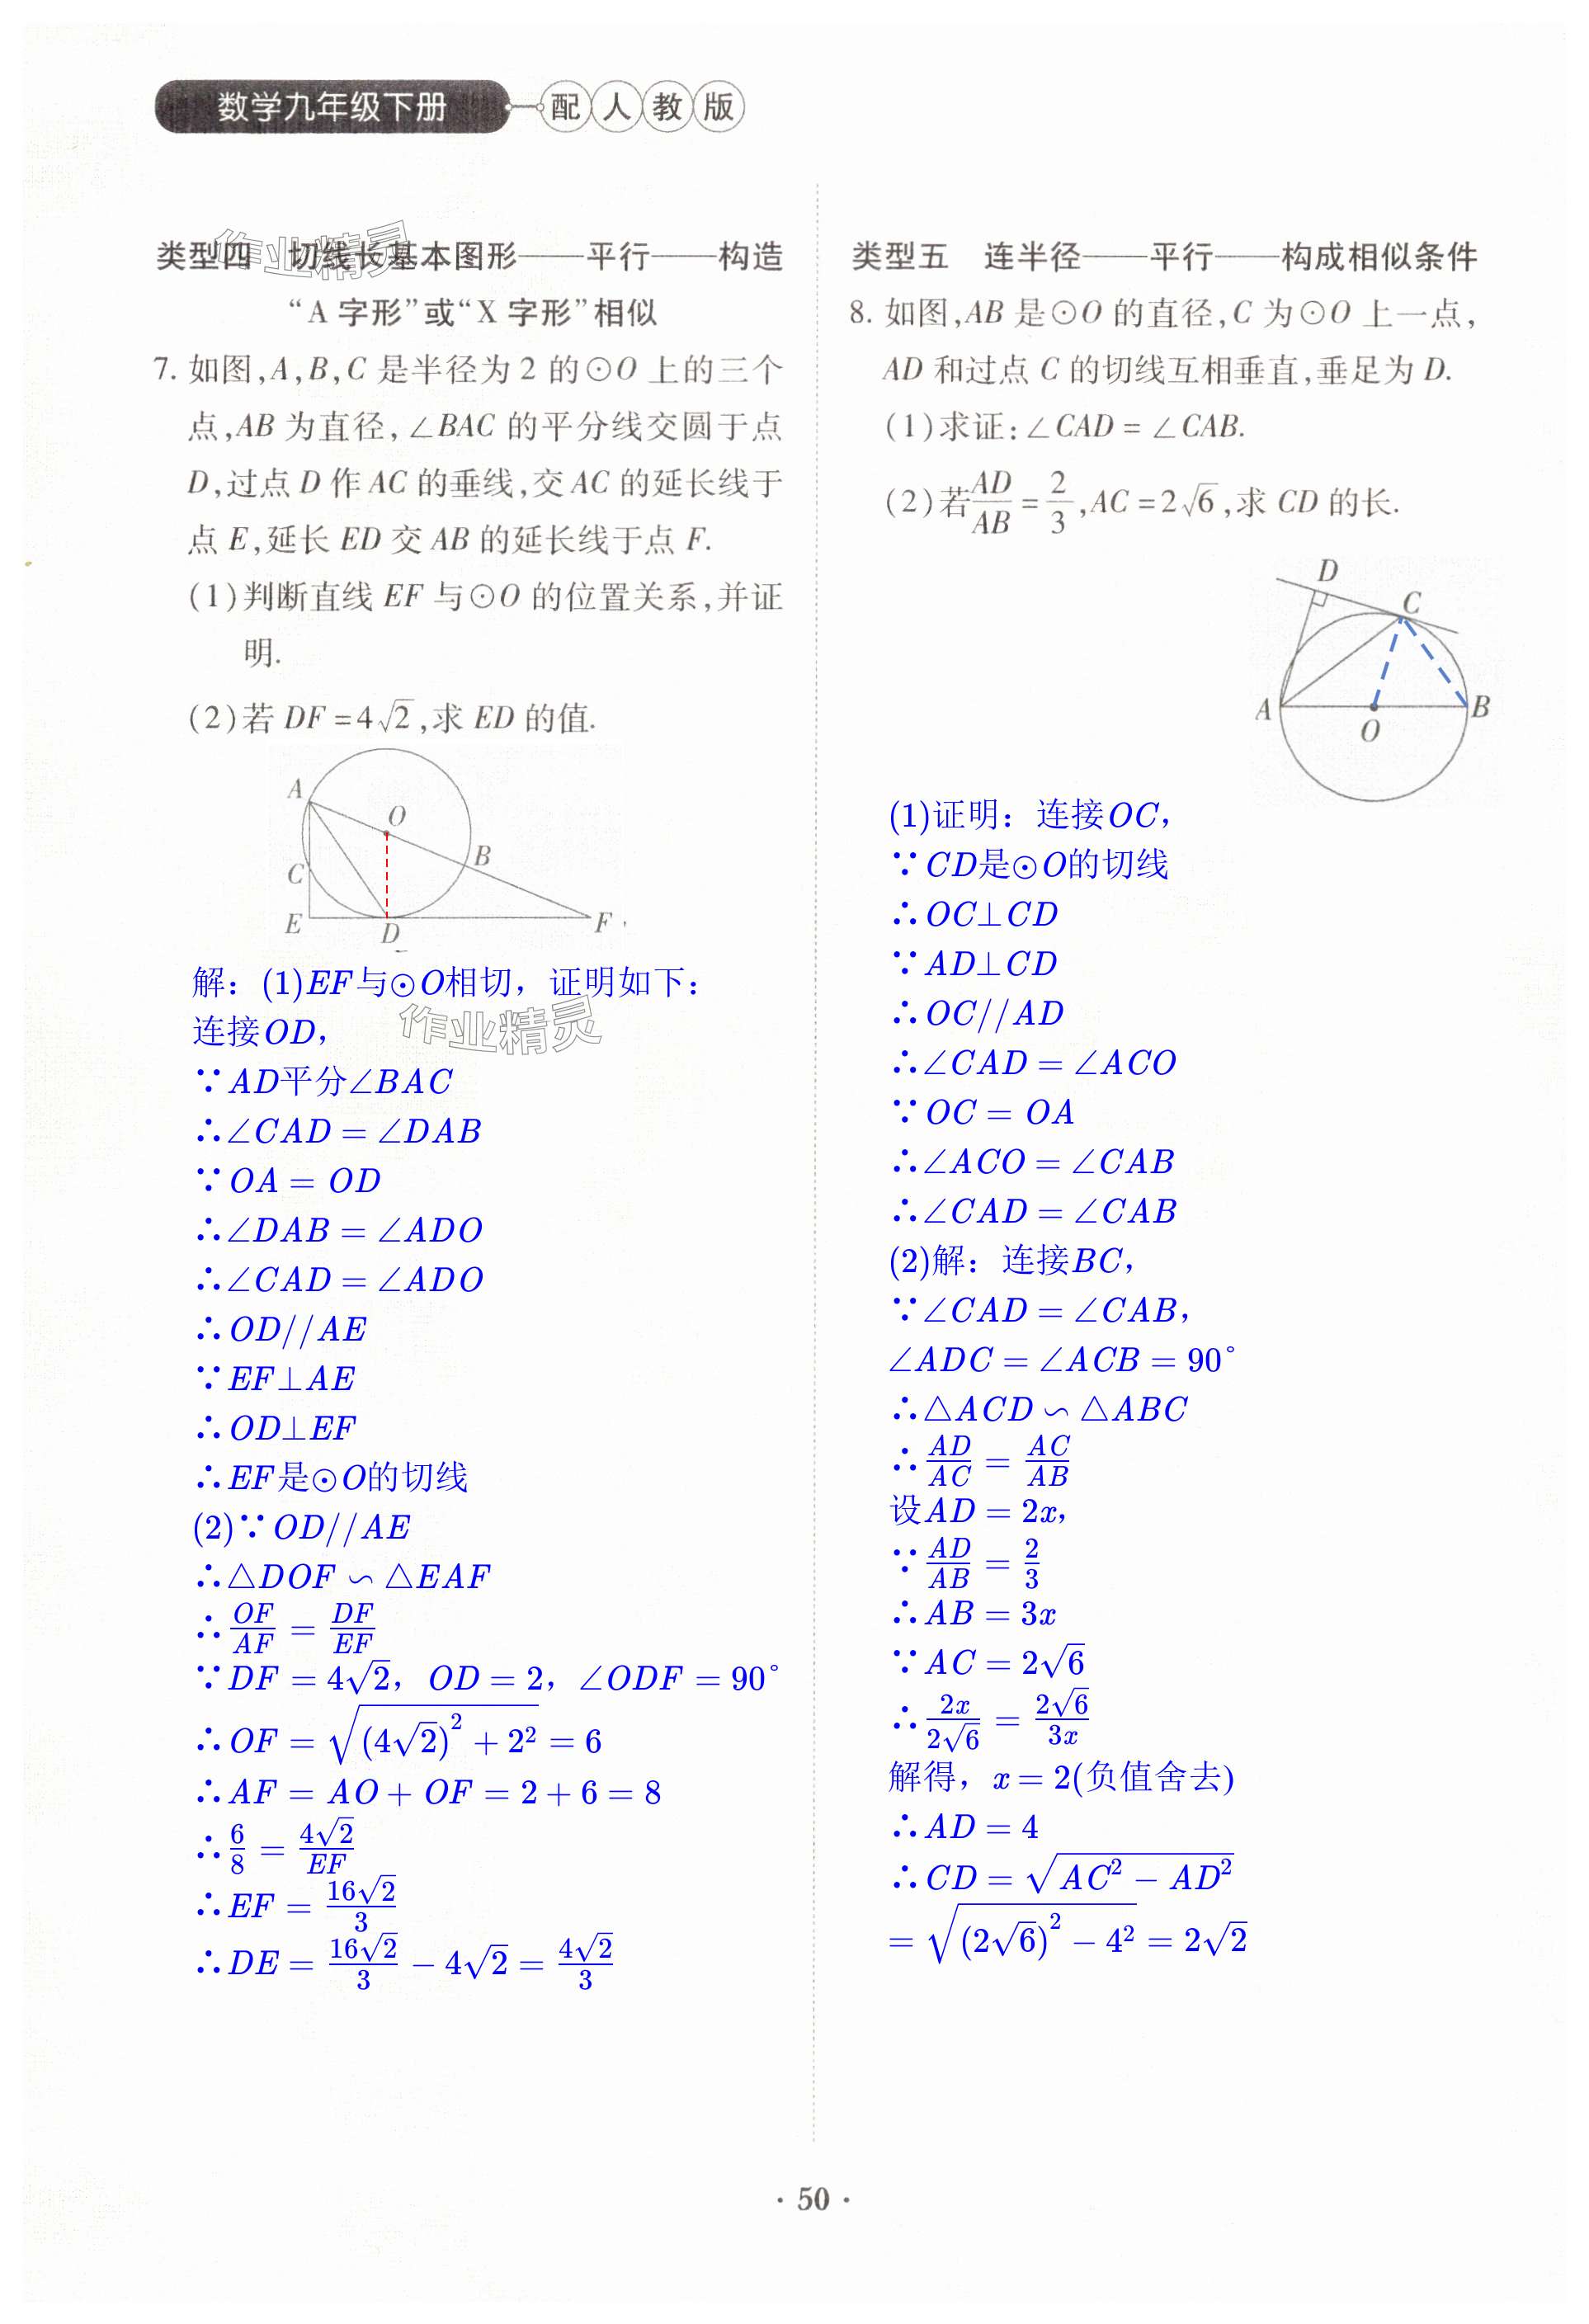 数学九年级下册 配人教版
类型四 切线长基本图形——平行——构造
“A 字形”或“X 字形”相似
7. 如图,A,B,C 是半径为 2 的⊙O 上的三个
点,AB 为直径,∠BAC 的平分线交圆于点
D,过点 D 作 AC 的垂线,交 AC 的延长线于
点 E,延长 ED 交 AB 的延长线于点 F.
(1)判断直线 EF 与⊙O 的位置关系,并证
明.
(2)若 DF=4√2,求 ED 的值.
A
O
B
C
E
D
F
解：(1)EF与⊙O相切，证明如下：
连接OD，
∵AD平分∠BAC
∴∠CAD = ∠DAB
∵OA = OD
∴∠DAB = ∠ADO
∴∠CAD = ∠ADO
∴OD//AE
∵EF⊥AE
∴OD⊥EF
∴EF是⊙O的切线
(2)∵OD//AE
∴△DOF∽△EAF
∴OF/AF = DF/EF
∵DF = 4√2，OD = 2，∠ODF = 90°
∴OF = √((4√2)² + 2²) = 6
∴AF = AO + OF = 2 + 6 = 8
∴6/8 = 4√2/EF
∴EF = 16√2/3
∴DE = 16√2/3 − 4√2 = 4√2/3
类型五 连半径——平行——构成相似条件
8. 如图,AB 是⊙O 的直径,C 为⊙O 上一点,
AD 和过点 C 的切线互相垂直,垂足为 D.
(1)求证:∠CAD=∠CAB.
(2)若AD/AB=2/3,AC=2√6,求 CD 的长.
D
C
A
O
B
(1)证明：连接OC，
∵CD是⊙O的切线
∴OC⊥CD
∵AD⊥CD
∴OC//AD
∴∠CAD = ∠ACO
∵OC = OA
∴∠ACO = ∠CAB
∴∠CAD = ∠CAB
(2)解：连接BC，
∵∠CAD = ∠CAB，
∠ADC = ∠ACB = 90°
∴△ACD∽△ABC
∴AD/AC = AC/AB
设AD = 2x，
∵AD/AB = 2/3
∴AB = 3x
∵AC = 2√6
∴2x/2√6 = 2√6/3x
解得，x = 2(负值舍去)
∴AD = 4
∴CD = √(AC² − AD²)
= √((2√6)² − 4²) = 2√2
作业精灵
作业精灵
· 50 ·